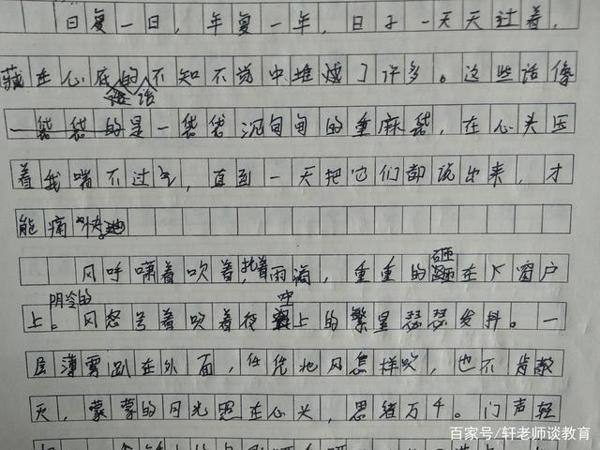 日复一日，年复一年，日子一天天过着，
藏在心底的话语不知不觉中堆矮了许多。这些话像
一袋袋的是一袋袋沉甸甸的重麻袋，在心头压
着我喘不过气，直到一天把它们都说出来，才
能痛快地
风呼啸着吹着，托着雨滴，重重的砸在了窗户
上。阴冷的风怒号着吹着夜空上的繁星瑟瑟发抖。一
层薄雾趴在外面，任凭北风怎样吹，也不肯散
灭，蒙蒙的月光照在心头，思绪万千。门声轻
百家号/轩老师谈教育